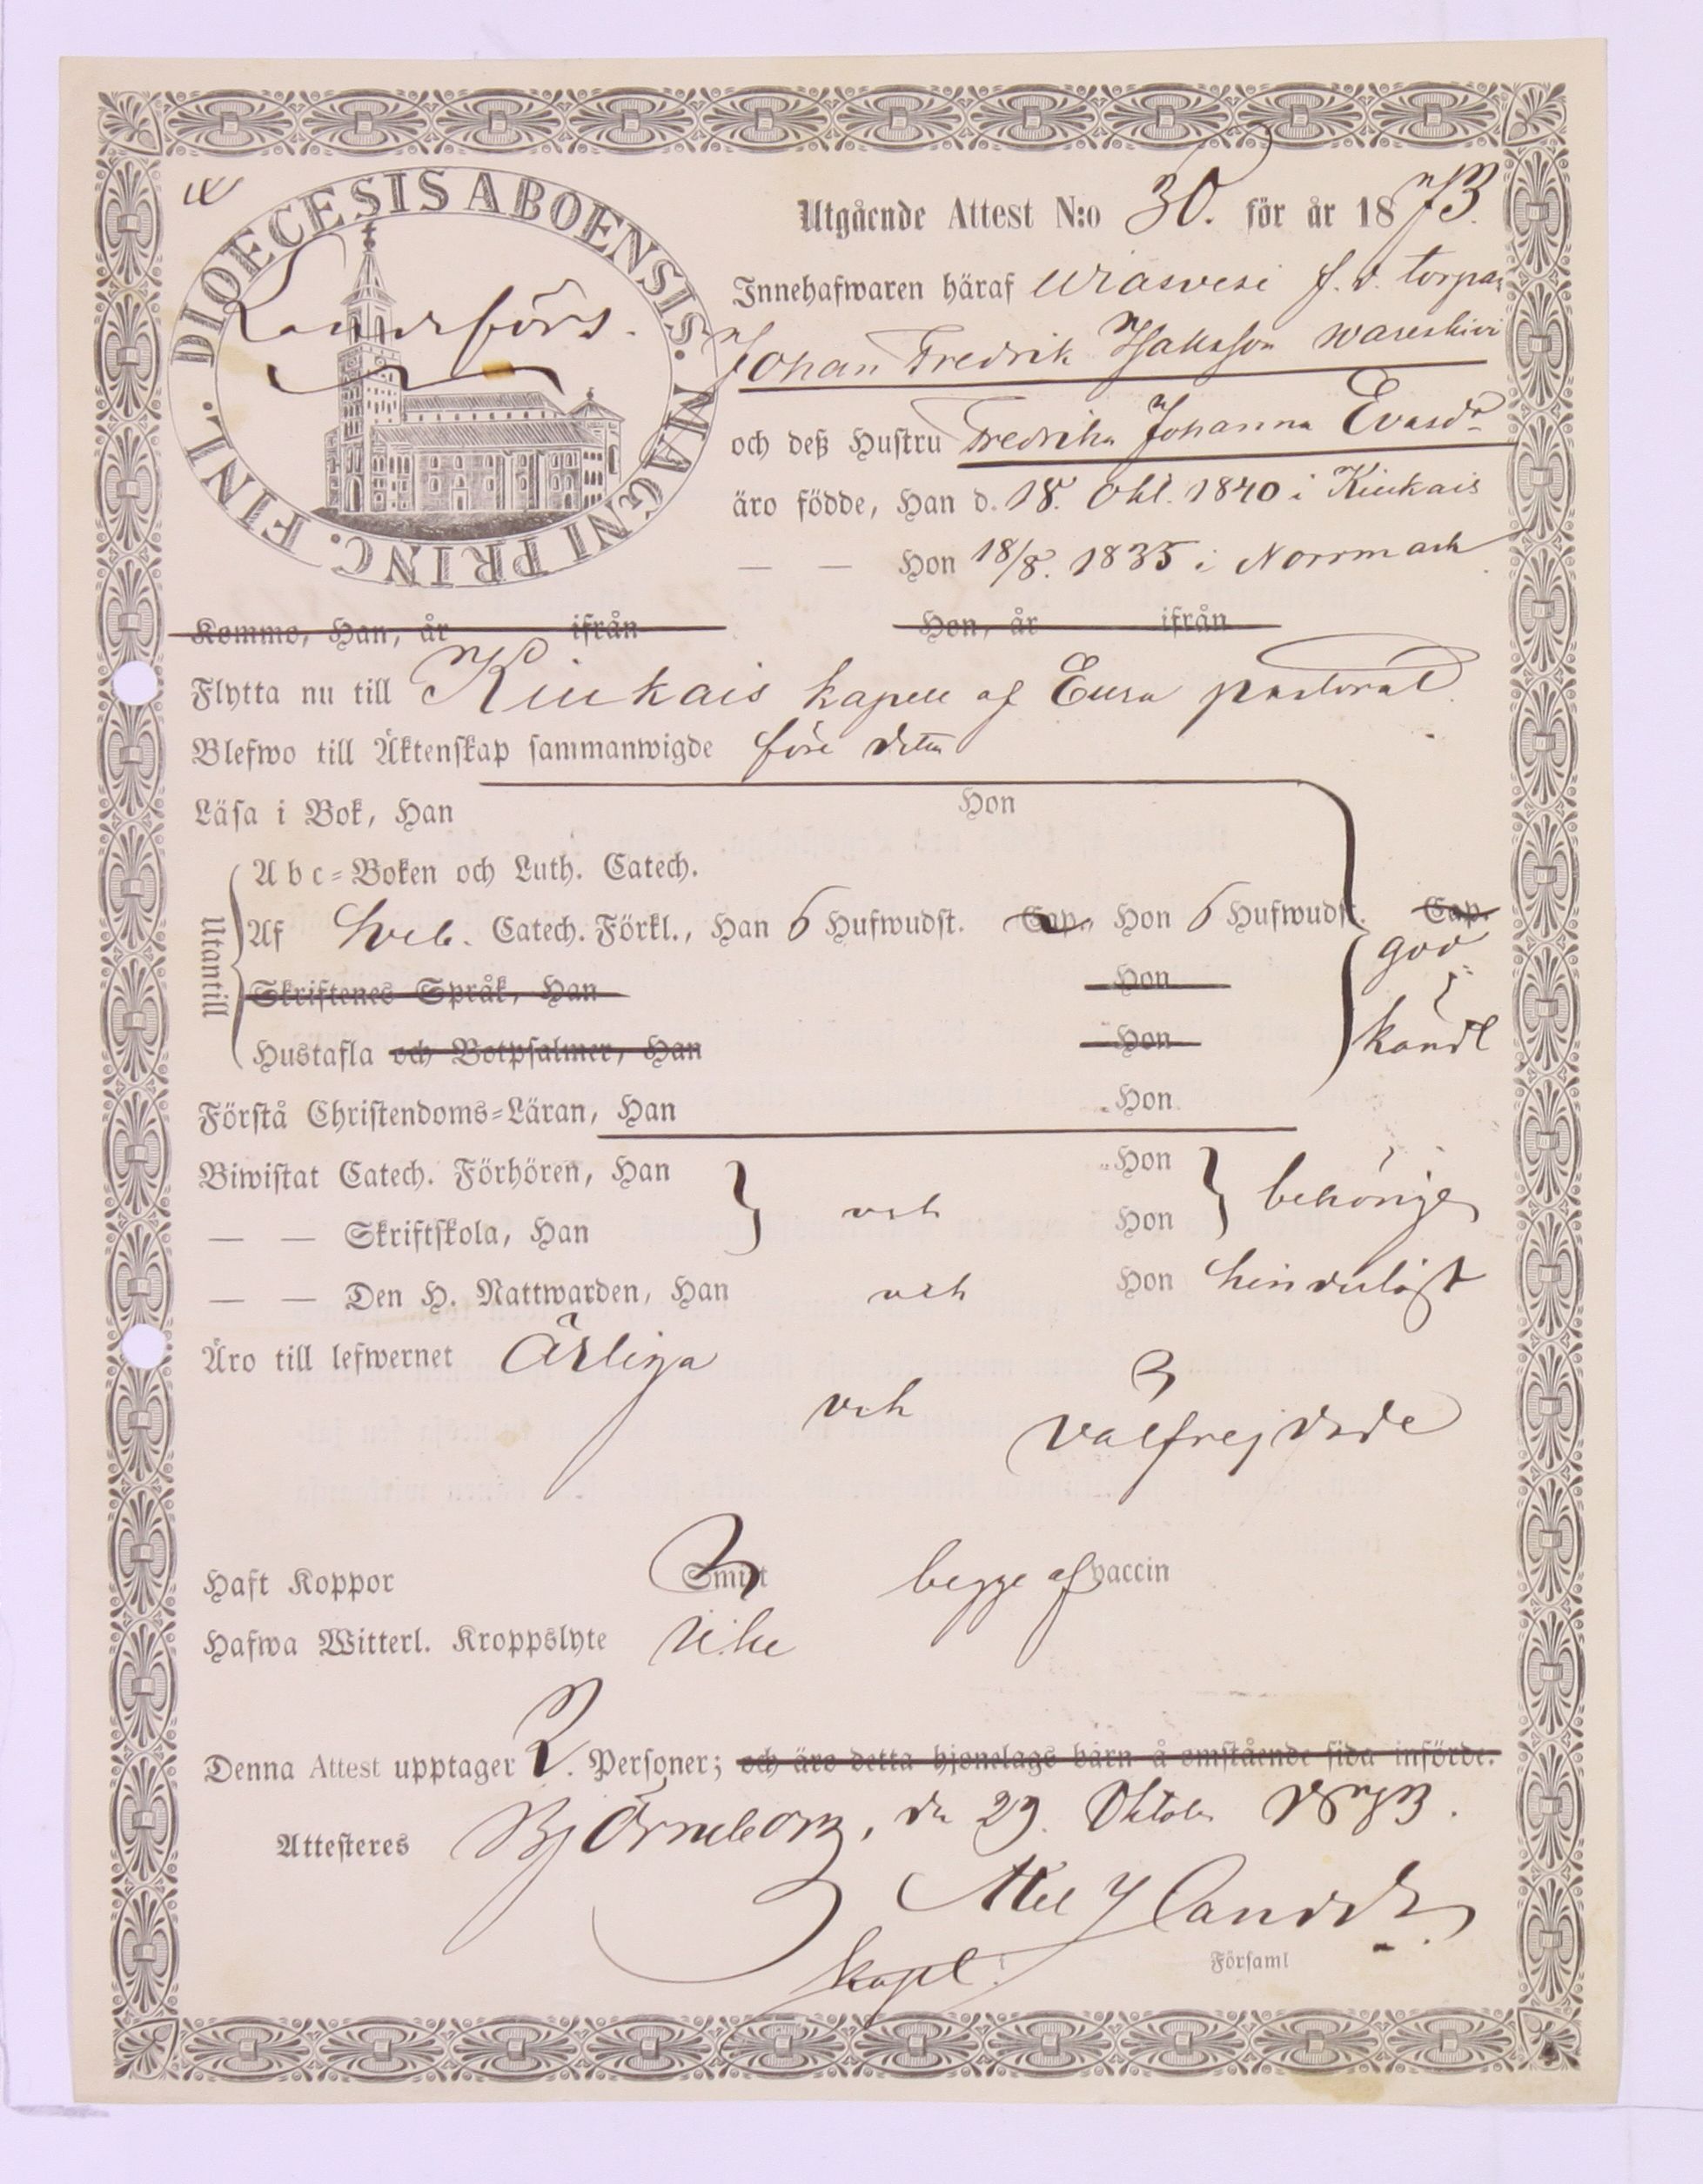 DIOECESIS ABOENSIS. MAGNI PRINC. FINL.
Utgående Attest N:o 30. för år 1873.
Innehafwaren häraf f. d. torpar
Johan Fredrik Isaksson
och deß Hustru Fredrika Johanna Evasdr
äro födde, Han d. 18. Okt. 1840 i Kiukais
— — Hon 18/8. 1835 i Norrmark
Kommo, Han, år ifrån Hon, år ifrån
Flytta nu till Kiukais kapell af Eura pastorat
Blefwo till Äktenskap sammanwigde före detta
Läsa i Bok, Han Hon
Utantill
Abc-Boken och Luth. Catech.
Af Sveb. Catech. Förkl., Han 6 Hufwudst. Cap. Hon 6 Hufwudst. Cap.
Skriftenes Språk, Han Hon
god
Hustafla och Botpsalmer, Han Hon
kändt
Förstå Christendoms-Läran, Han Hon
Biwistat Catech. Förhören, Han Hon
och behörigen
— — Skriftskola, Han Hon
— — Den H. Nattwarden, Han och Hon hinderlöst
Äro till lefwernet Ärliga
och välfrejdade
Haft Koppor Smitt begge af vaccin
Hafwa Witterl. Kroppslyte icke
Denna Attest upptager 2. Personer; och äro detta hjonelags barn å omstående sida införde.
Attesteres Björneborg, den 29. Oktober 1873.
kapl. Församl